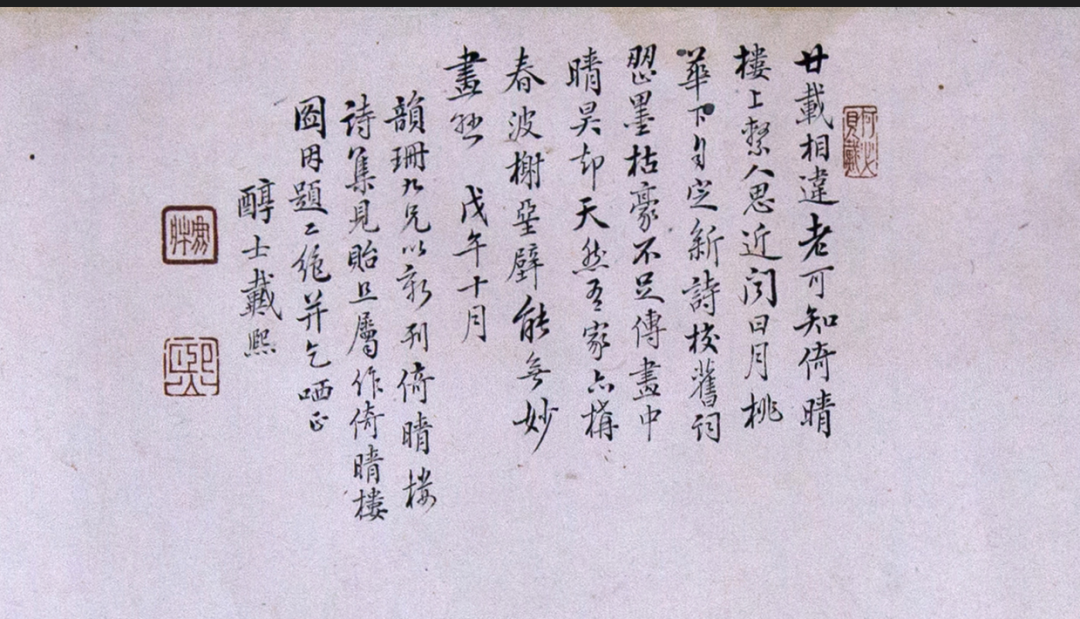 廿載相違老可知倚晴
樓上繫人思近聞日月桃
華下自定新詩校舊詞
墨枯豪不足傳畫中
晴昊却天然吾家亦構
春波榭堊壁能無妙
畫 戊午十月
韻珊九兄以新刊倚晴樓
詩集見貽且屬作倚晴樓
圖因題二絶并乞哂正
醇士戴熙